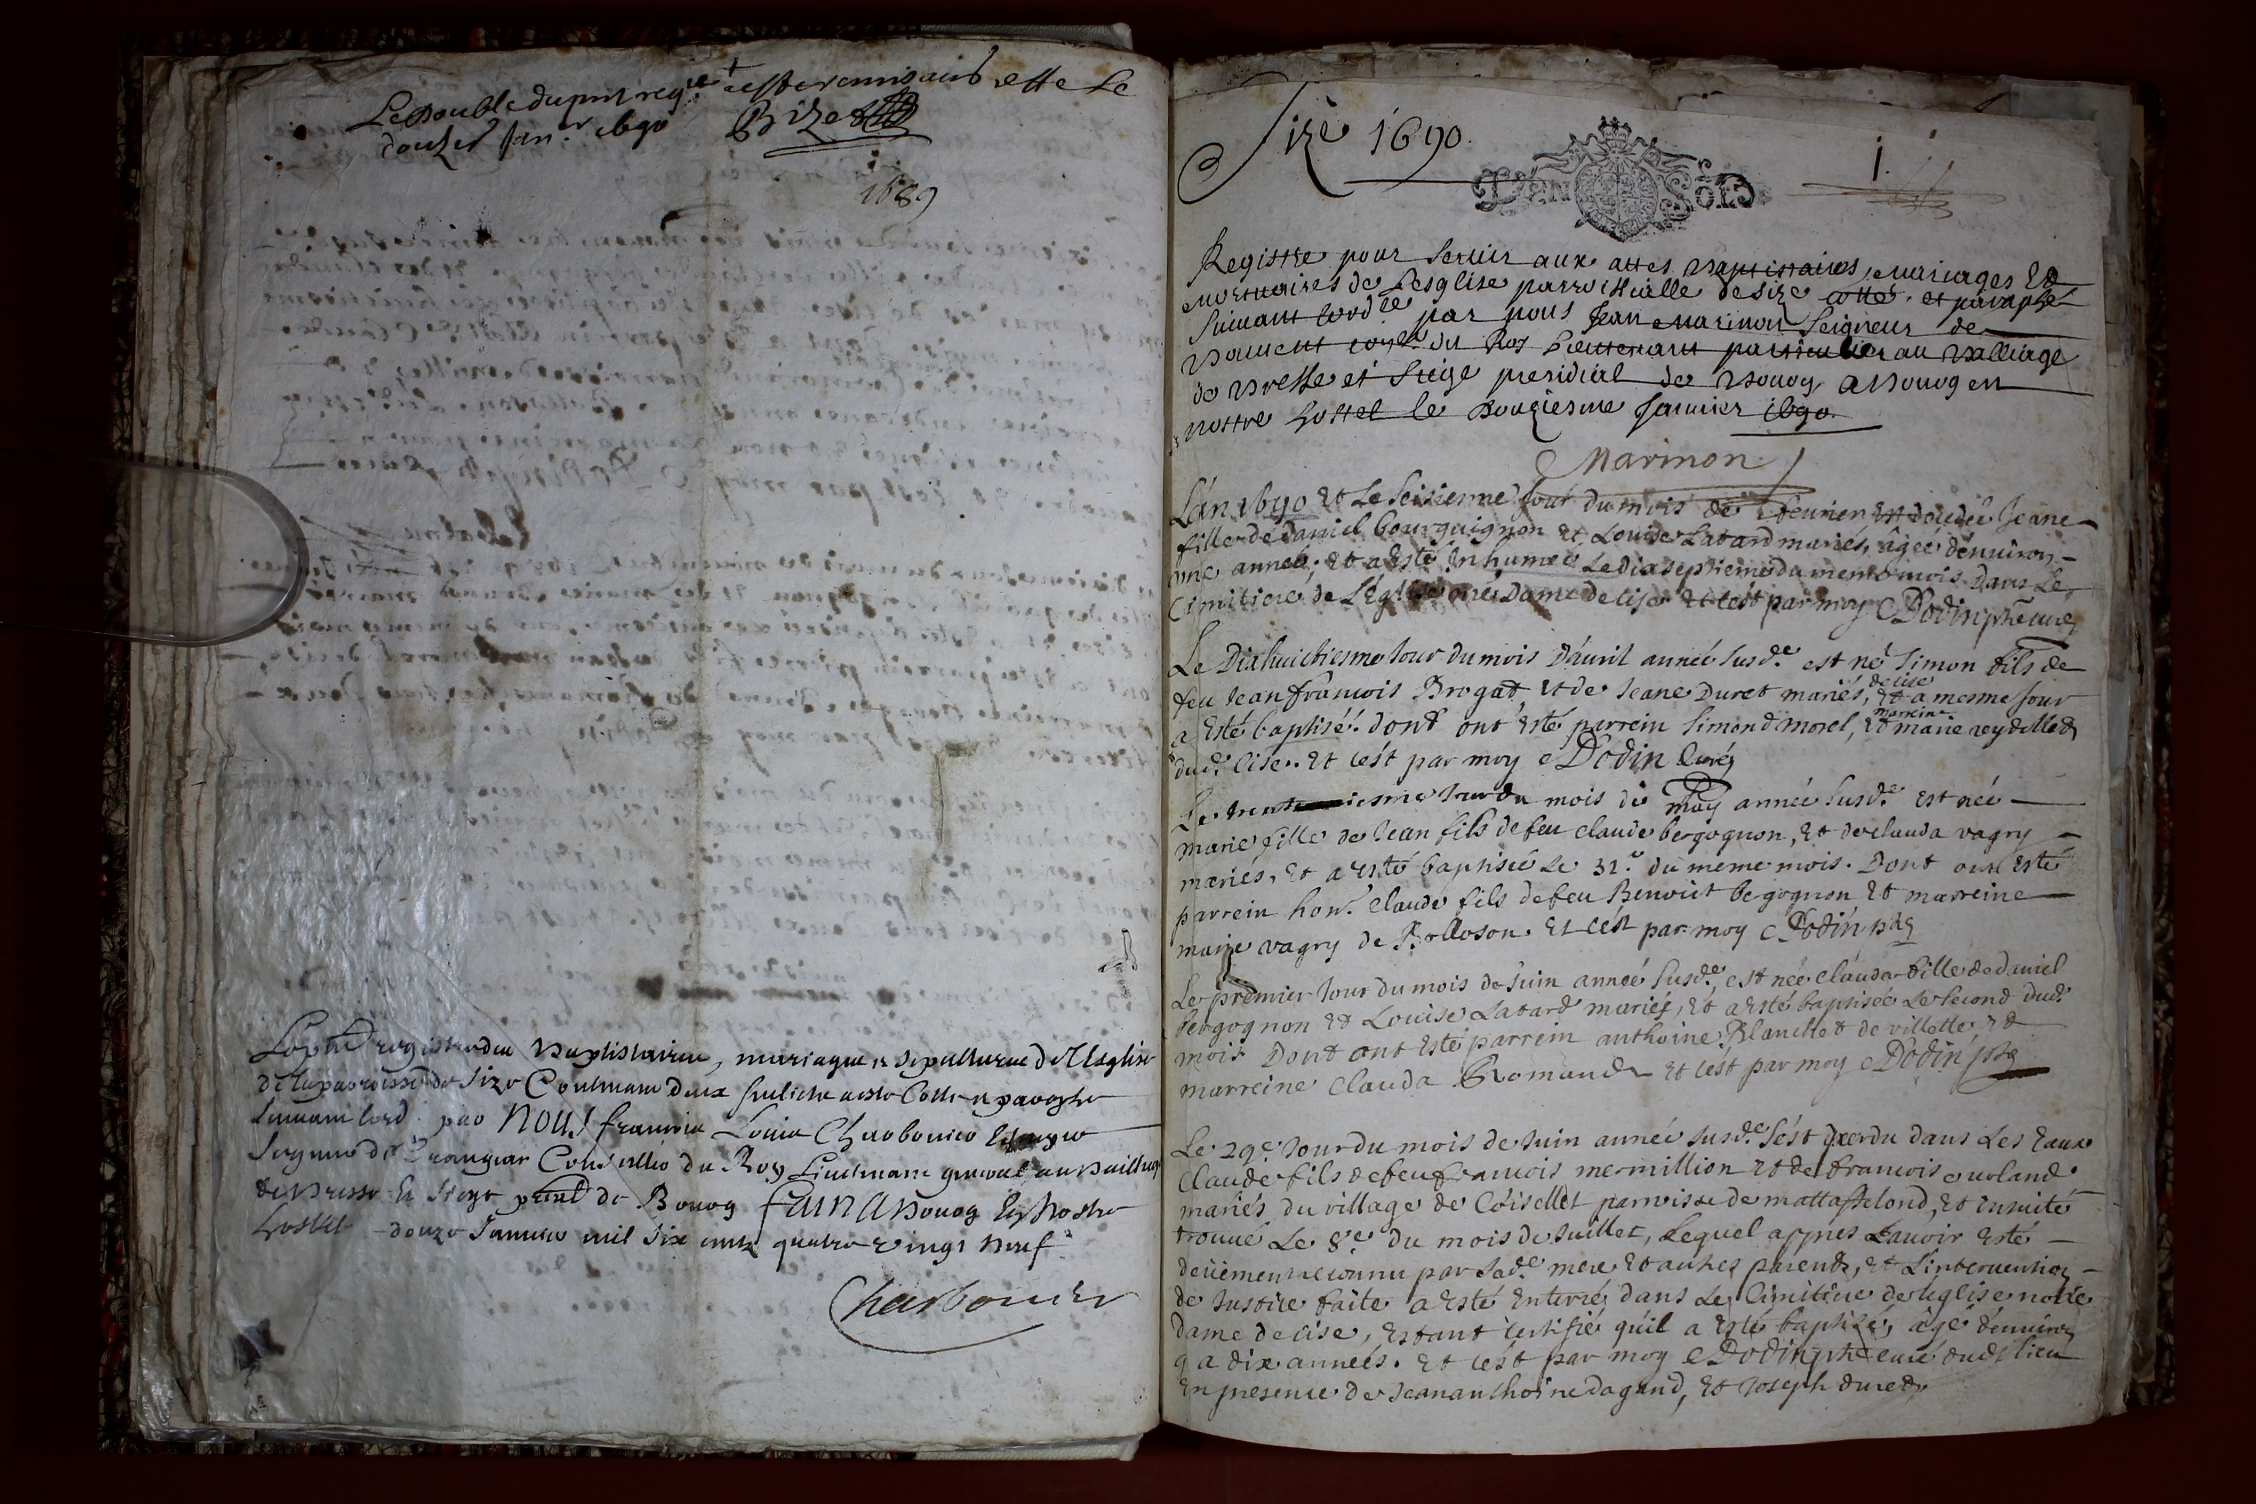 Le Double du pnt regre a este remis au greffe Le
douze Janr 1690 Bizet
1689
Le pnt registre des Baptistaires, mariages et sepultures de l'Esglise
de la parroisse de Size Contenant deux feuliets a esté Cotté et paraphé
suivant l'ord. par NOUS françois Louis Charbonier Escuyer
Seigneur de Crangeac Conseiller du Roy Lieutenant general au Bailliage
de Bresse et siege presl de Bourg fait A Bourg En Nostre
hostel douze Janvier mil six cents quatre vingt neuf
Charbonier
Size 1690.
1.
D'en Sols
Registre pour servir aux actes Baptistaires, mariages Et
mortuaires de L'esglise parroissialle de size cotté, et paraphé
suivant l'ordce par nous Jean marinon seigneur de
Bonvent coner du Roy Lieutenant particulier au Balliage
de Bresse et siege presidial de Bourg a Bourg en
nostre hostel le douziesme janvier 1690.
Marinon
L'an 1690 Et Le seisieme Jour du mois de fevrier Est decedée Jeane
fille de daniel bourguignon Et Louise Latard mariés, âgeé d'environ
une année, Et a Esté Inhumeé Le dixseptieme du meme mois dans Le
Cimitiere de L'Église nre Dame de cise Et c'est par moy Dodin pbre curé
Le Dixhuictiesme Jour du mois D'avril année susd.e est né Simon fils de
feu Jean françois Brogat Et de Jeane Duret mariés, de cise Et a mesme Jour
a Esté baptisé. dont ont Esté parrein Simond morel, Et marreine marie reydellet
dud. Cise. Et c'est par moy Dodin Curé
Le trentiesme Jour du mois de may année susd.e est née
marie fille de Jean fils de feu claude bergognon, Et de clauda vagry
mariés, Et a esté baptisée Le 31.e du meme mois. Dont ont Esté
parrein hon. Claude fils de feu Benoist bergognon Et marreine
marie vagry de Bolloson. Et c'est par moy Dodin pbre
Le premier Jour du mois de Juin anneé susd.e, est née clauda fille de daniel
bergognon Et Louise Latard mariés, Et a esté baptisée Le second dud.
mois. Dont ont Esté parrein anthoine Blanchet de villette Et
marreine Clauda Romand Et c'est par moy Dodin pbre
Le 29.e Jour du mois de Juin année susd.e s'est perdu dans Les Eaux
Claude fils de feu françois mermillion Et de francois ourland
mariés du village de Coisellet parroisse de mattaffelond, Et Ensuite
trouvé Le 8.e du mois de Juillet, Lequel appres L'avoir Esté
deüement reconnu par sad.e mere Et autres parents, Et L'intervention
de Justice faite a Esté Enterré dans Le Cimitiere de leglise notre
dame de cise, Estant certifié qu'il a Esté baptizé, âgé d'environ
9 a dix anneés. Et c'est par moy Dodin pbre curé dud. lieu
En presence de Jean anthoine dagand, Et Joseph duret.